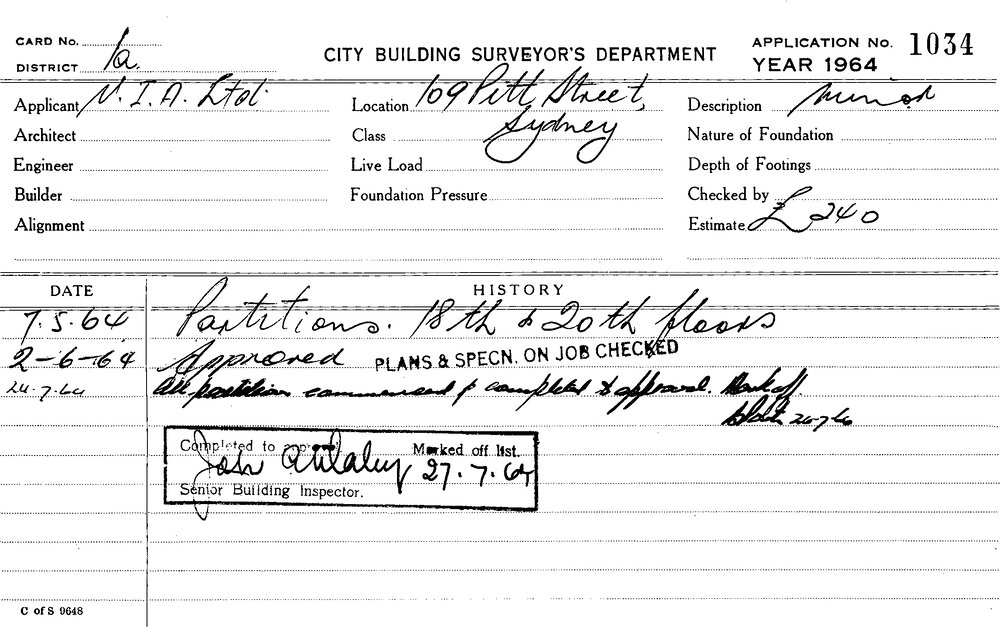 CARD No.
DISTRICT 1a.
CITY BUILDING SURVEYOR'S DEPARTMENT
APPLICATION No. 1034
YEAR 1964
Applicant N. I. A. Ltd. Location 109 Pitt Street, Sydney Description minor
Architect Class Nature of Foundation
Engineer Live Load Depth of Footings
Builder Foundation Pressure Checked by
Alignment Estimate £ 240
DATE HISTORY
7.5.64 Partitions. 18th & 20th floors
2-6-64 Approved PLANS & SPECN. ON JOB CHECKED
24.7.64 All partition commenced & completed to approval. Mark off.
24-7-64
Completed to approval Marked off list.
27.7.64
Senior Building Inspector.
C of S 9648